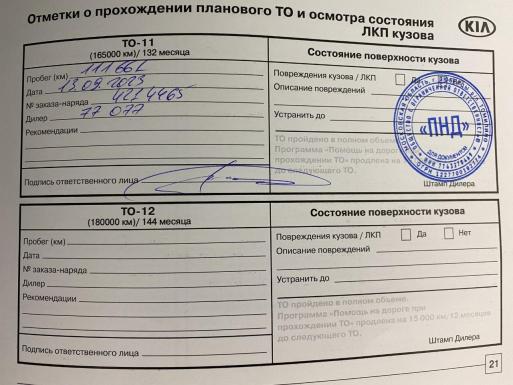 Отметки о прохождении планового ТО и осмотра состояния
ЛКП кузова
KIA
ТО-11
(165000 км)/ 132 месяца
Пробег (км) 111 661
Дата 13.09.2023
№ заказа-наряда 4214465
Дилер 77 077
Рекомендации
Подпись ответственного лица
Состояние поверхности кузова
Повреждения кузова / ЛКП Да
Описание повреждений
Устранить до
ТО пройдено в полном объеме.
Программа «Помощь на дороге
прохождении ТО» продлена на
до следующего ТО.
Штамп Дилера
«ПНД»
ДЛЯ ДОКУМЕНТОВ
ТО-12
(180000 км)/ 144 месяца
Пробег (км)
Дата
№ заказа-наряда
Дилер
Рекомендации
Подпись ответственного лица
Состояние поверхности кузова
Повреждения кузова / ЛКП Да Нет
Описание повреждений
Устранить до
ТО пройдено в полном объеме.
Программа «Помощь на дороге при
прохождении ТО» продлена на 15 000 км, 12 месяцев
до следующего ТО.
Штамп Дилера
21